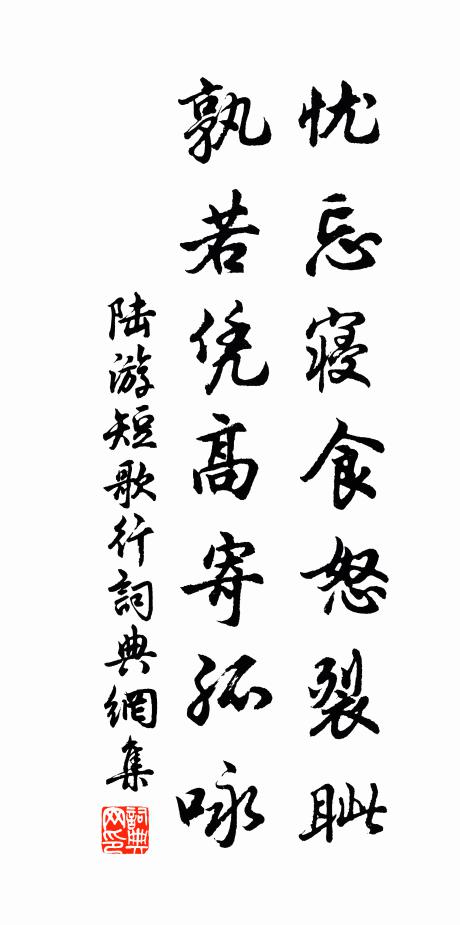 忧忘寝食怒裂眦
孰若凭高寄孤咏
陆游短歌行詞典網集
詞典网印